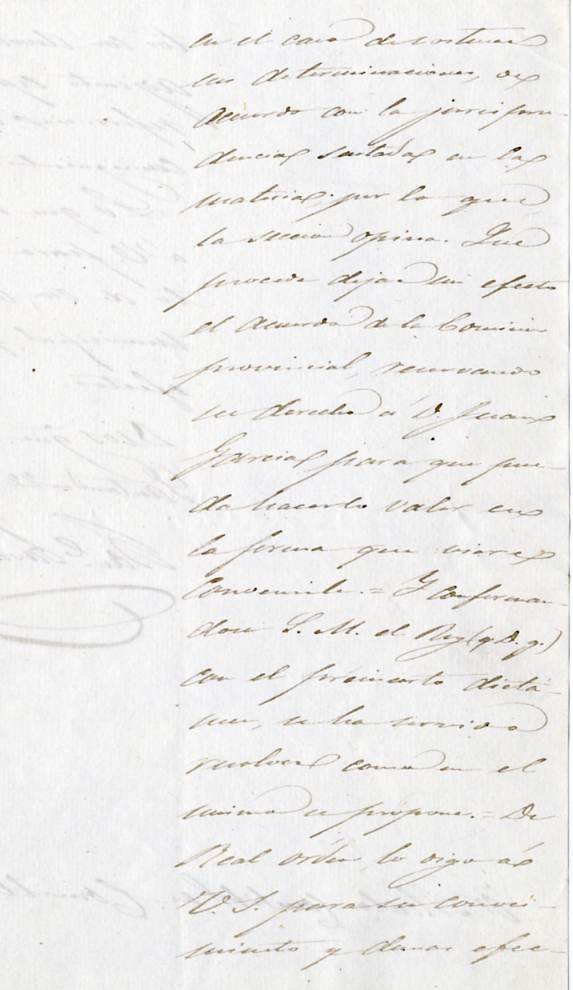 en el caso de sostener
sus determinaciones, de
acuerdo con la jurispru-
dencia sentada en la
materia; por lo que
la seccion opina. Que
procede dejar sin efecto
el acuerdo de la Comision
provincial, reservando
su derecho á D. Juan
Garcia para que pue-
da hacerlo valer en
la forma que viere
convenirle. = Y conforman-
dose S. M. el Rey (q. D. g.)
con el preinserto dictá-
men, se ha servido
resolver como en el
mismo se propone. = De
Real orden lo digo á
V. S. para su conoci-
miento y demas efec-